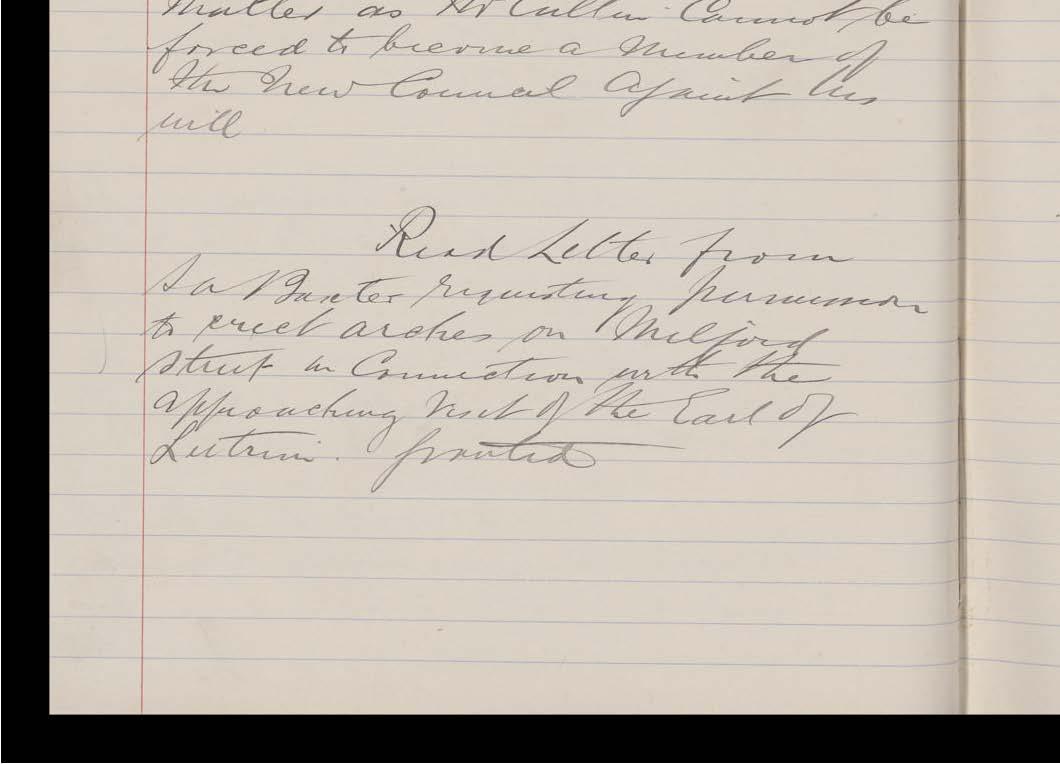 matter as Mr Cullin Cannot be
forced to become a Member of
the New Council Against his
will
Read Letter from
Baxter requesting permission
to erect arches on Milford
Street in Connection with the
approaching visit of the Earl of
Leitrim. Granted